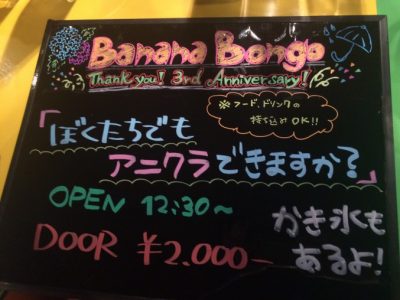 Banana Bongo
Thank you! 3rd Anniversary!
※フード、ドリンクの
持ち込みOK!!
「ぼくたちでも
アニクラできますか?」
OPEN 12:30~
かき氷も
DOOR ¥2.000-
あるよ!